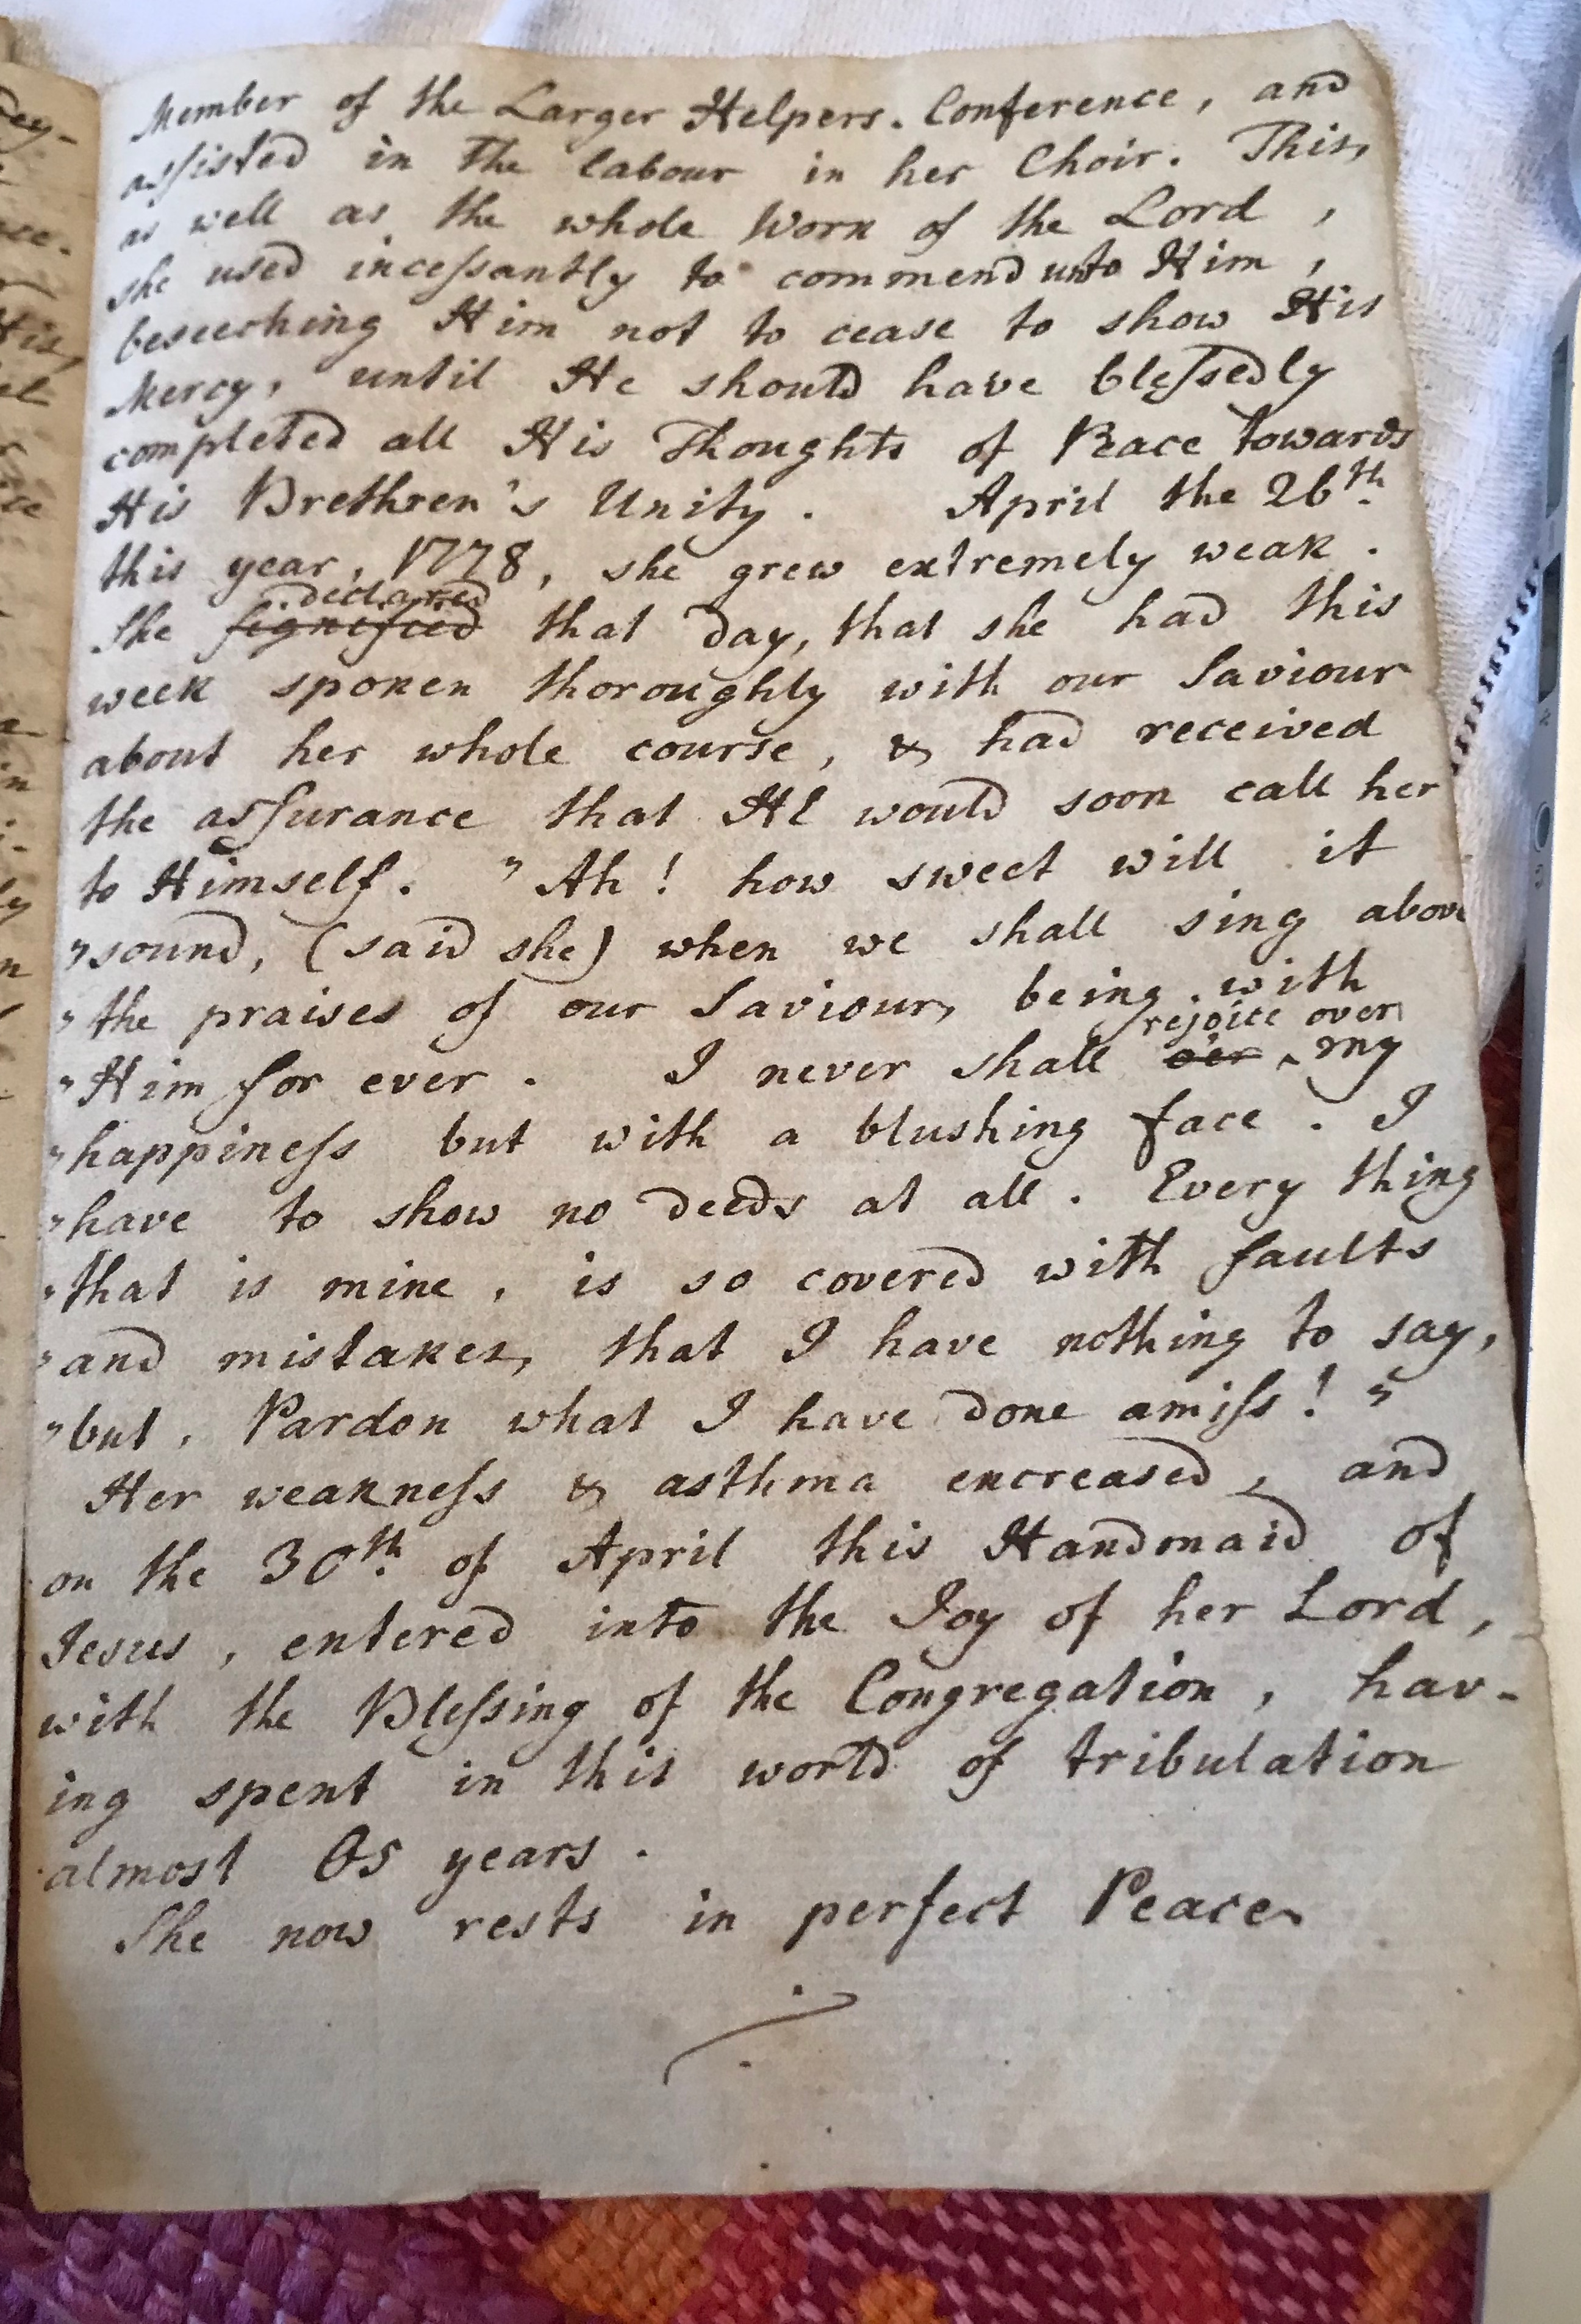 Member of the Larger Helpers. Conference, and
assisted in the labour in her Choir. This,
as well as the whole Work of the Lord,
she used incessantly to commend unto Him,
beseeching Him not to cease to show His
Mercy, until He should have blessedly
completed all His Thoughts of Peace towards
His Brethren's Unity. April the 26th.
this year, 1778, she grew extremely weak.
declared
She signified that day, that she had this
week spoken thoroughly with our Saviour
about her whole course, & had received
the assurance that He would soon call her
to Himself. "Ah! how sweet will it
"sound, (said she) when we shall sing above
"the praises of our Saviour, being with
rejoice over
"Him for ever. I never shall o'er ^ my
"happiness but with a blushing face. I
"have to show no deeds at all. Every thing
"that is mine, is so covered with faults
"and mistakes, that I have nothing to say,
"but, Pardon what I have done amiss!"
Her weakness & asthma encreased, and
on the 30th. of April this Handmaid of
Jesus, entered into the Joy of her Lord,
with the Blessing of the Congregation, hav-
ing spent in this world of tribulation
almost 65 years.
She now rests in perfect Peace